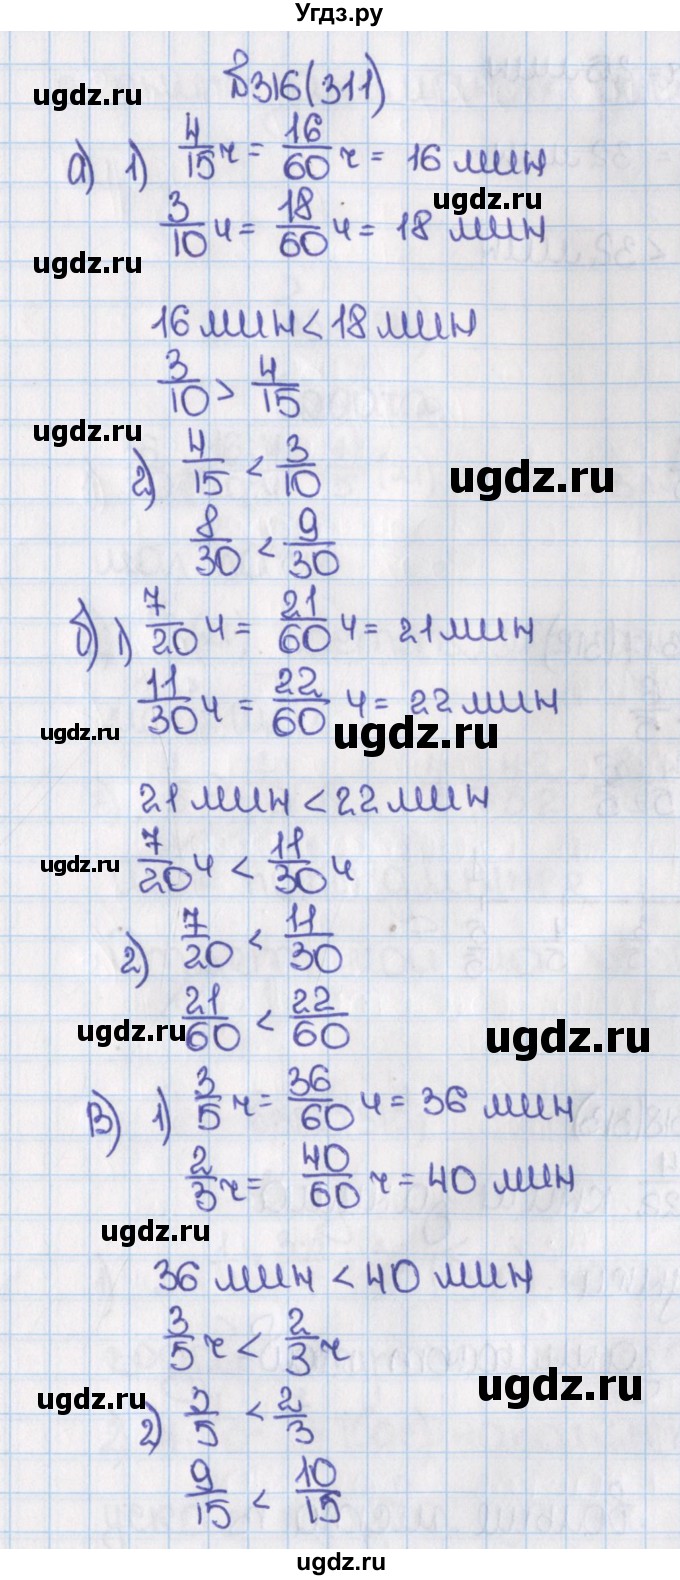 Угдз.ру
В316(311)
ugdz.ru
а) 1) 4/15 ч = 16/60 ч = 16 мин
ugdz.ru
3/10 ч = 18/60 ч = 18 мин
ugdz.ru
16 мин < 18 мин
3/10 > 4/15
ugdz.ru
2) 4/15 < 3/10
ugdz.ru
8/30 < 9/30
б) 1) 7/20 ч = 21/60 ч = 21 мин
11/30 ч = 22/60 ч = 22 мин
ugdz.ru
ugdz.ru
21 мин < 22 мин
7/20 ч < 11/30 ч
ugdz.ru
2) 7/20 < 11/30
21/60 < 22/60
ugdz.ru
ugdz.ru
В) 1) 3/5 ч = 36/60 ч = 36 мин
2/3 ч = 40/60 ч = 40 мин
ugdz.ru
36 мин < 40 мин
3/5 ч < 2/3 ч
ugdz.ru
ugdz.ru
2) 3/5 < 2/3
9/15 < 10/15
ugdz.ru